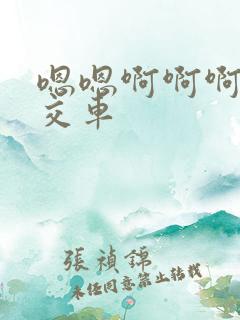 嗯嗯啊啊啊
交车
張禎錦
未经同意禁止转载